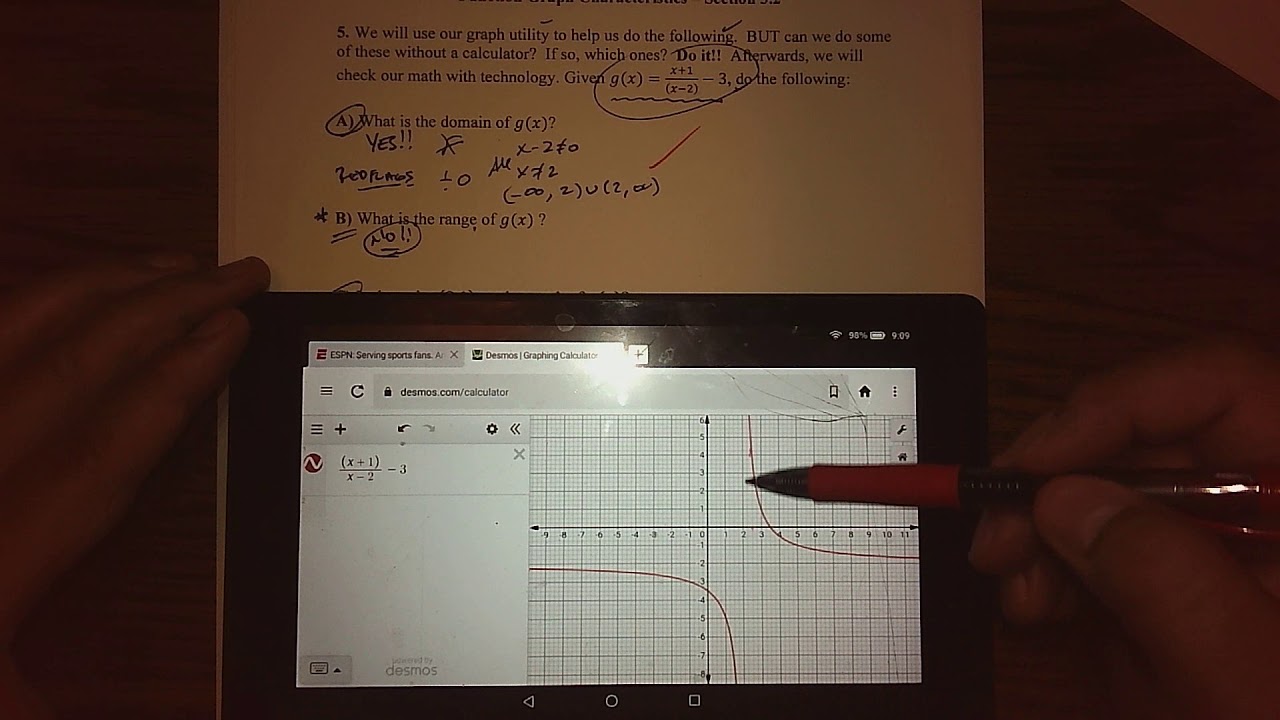 5. We will use our graph utility to help us do the following. BUT can we do some
of these without a calculator? If so, which ones? Do it!! Afterwards, we will
check our math with technology. Given g(x) = x+1/(x-2) − 3, do the following:
A) What is the domain of g(x)?
YES!! x-2≠0
÷0 x≠2
(-∞, 2)∪(2, ∞)
* B) What is the range of g(x) ?
No!!
98% 9:09
ESPN: Serving sports fans. A Desmos | Graphing Calculator
desmos.com/calculator
(x+1)/x-2 - 3
6
5
4
3
2
1
-9 -8 -7 -6 -5 -4 -3 -2 -1 0 1 2 3 4 5 6 7 8 9 10 11
-3
-4
-6
-7
-8
powered by
desmos